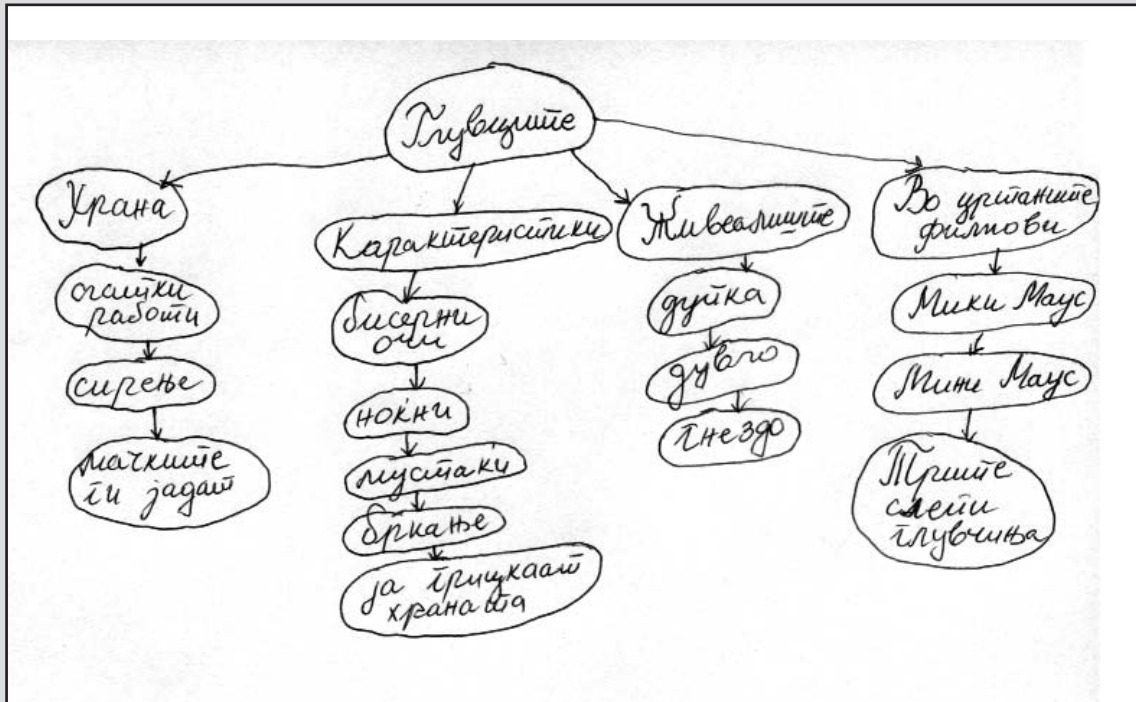 Глувците
Храна
слатки
работи
сирење
мачките
ги јадат
Карактеристики
бисерни
очи
нокни
мустаќи
бркање
ја грицкаат
храната
Живеалиште
дупка
дувло
гнездо
Во цртаните
филмови
Мики Маус
Мини Маус
Трите
слепи
глувчиња